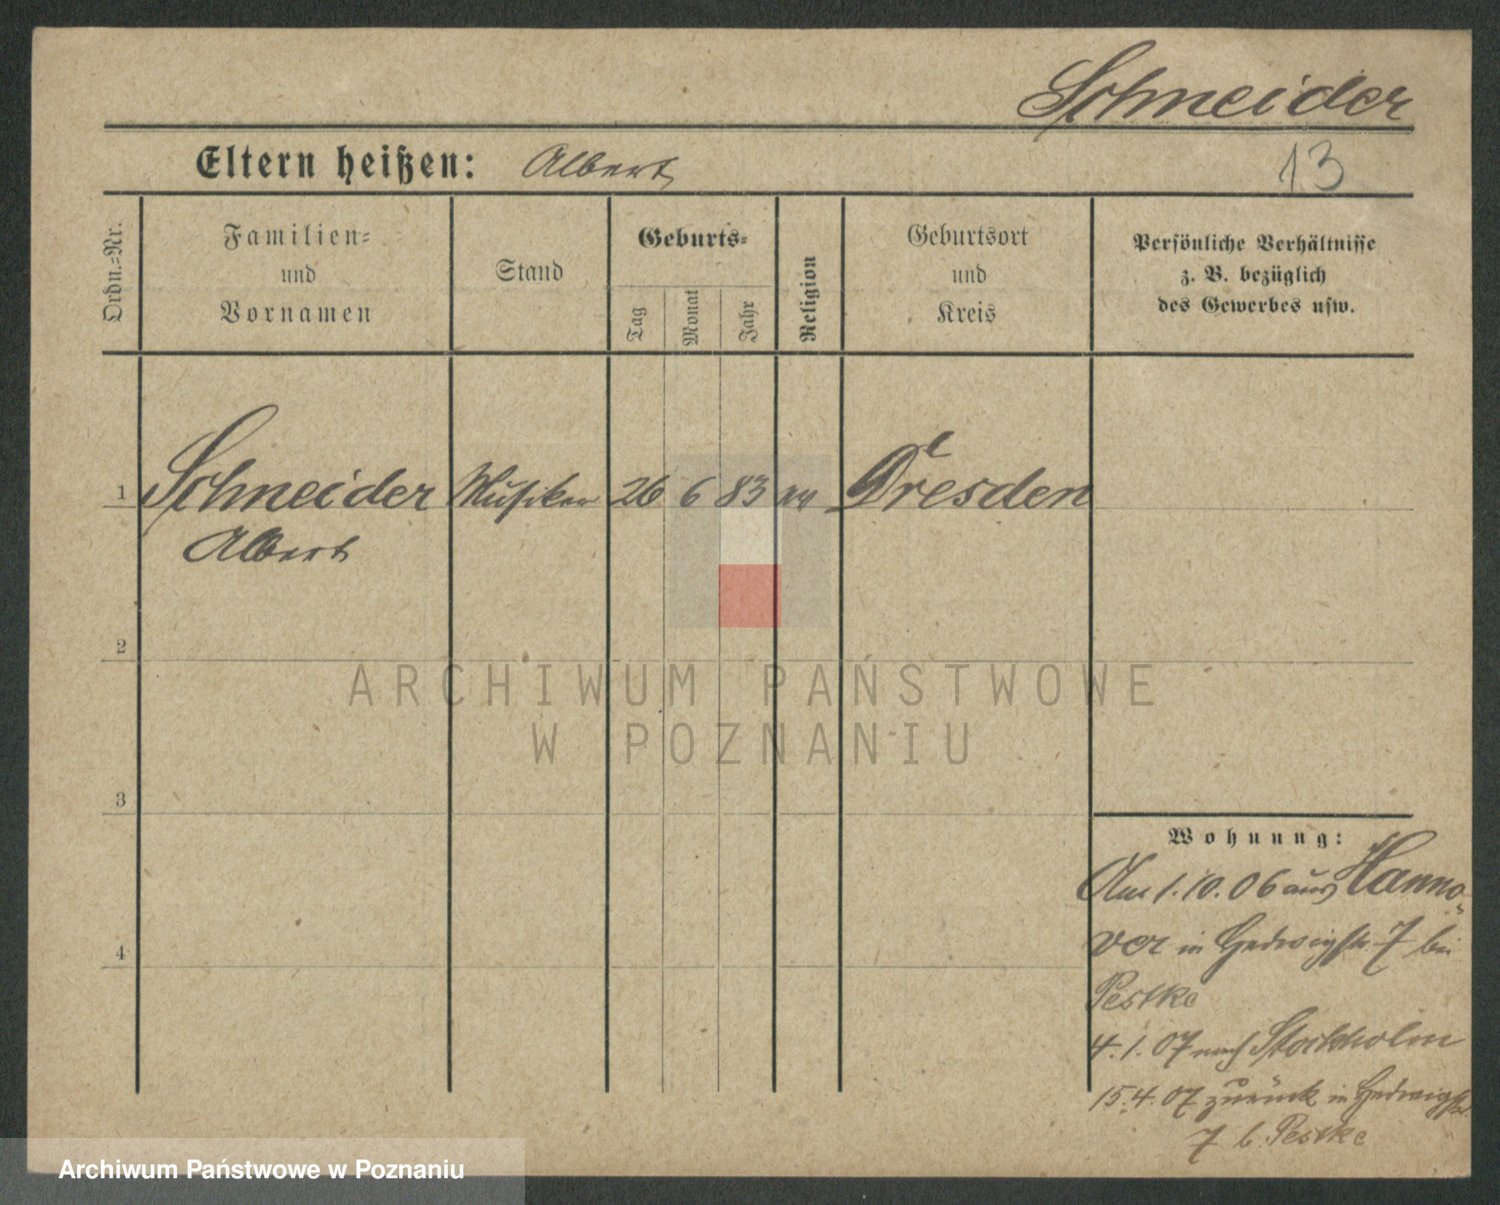 Schneider
Eltern heißen: Albert
13
Ordn.-Nr.
Familien-
und
Vornamen
Stand
Geburts-
Tag
Monat
Jahr
Religion
Geburtsort
und
Kreis
Persönliche Verhältnisse
z. B. bezüglich
des Gewerbes usw.
1 Schneider Musiker 26 6 83 Dresden
Albert
2
ARCHIWUM PAŃSTWOWE
W POZNANIU
3
Wohnung:
Am 1.10.06 aus Hanno-
ver in Hedwigstr. 7 bei
Pestke
4
4.1.07 nach Stockholm
15.4.07 zurück in Hedwigstr.
7 b. Pestke
Archiwum Państwowe w Poznaniu